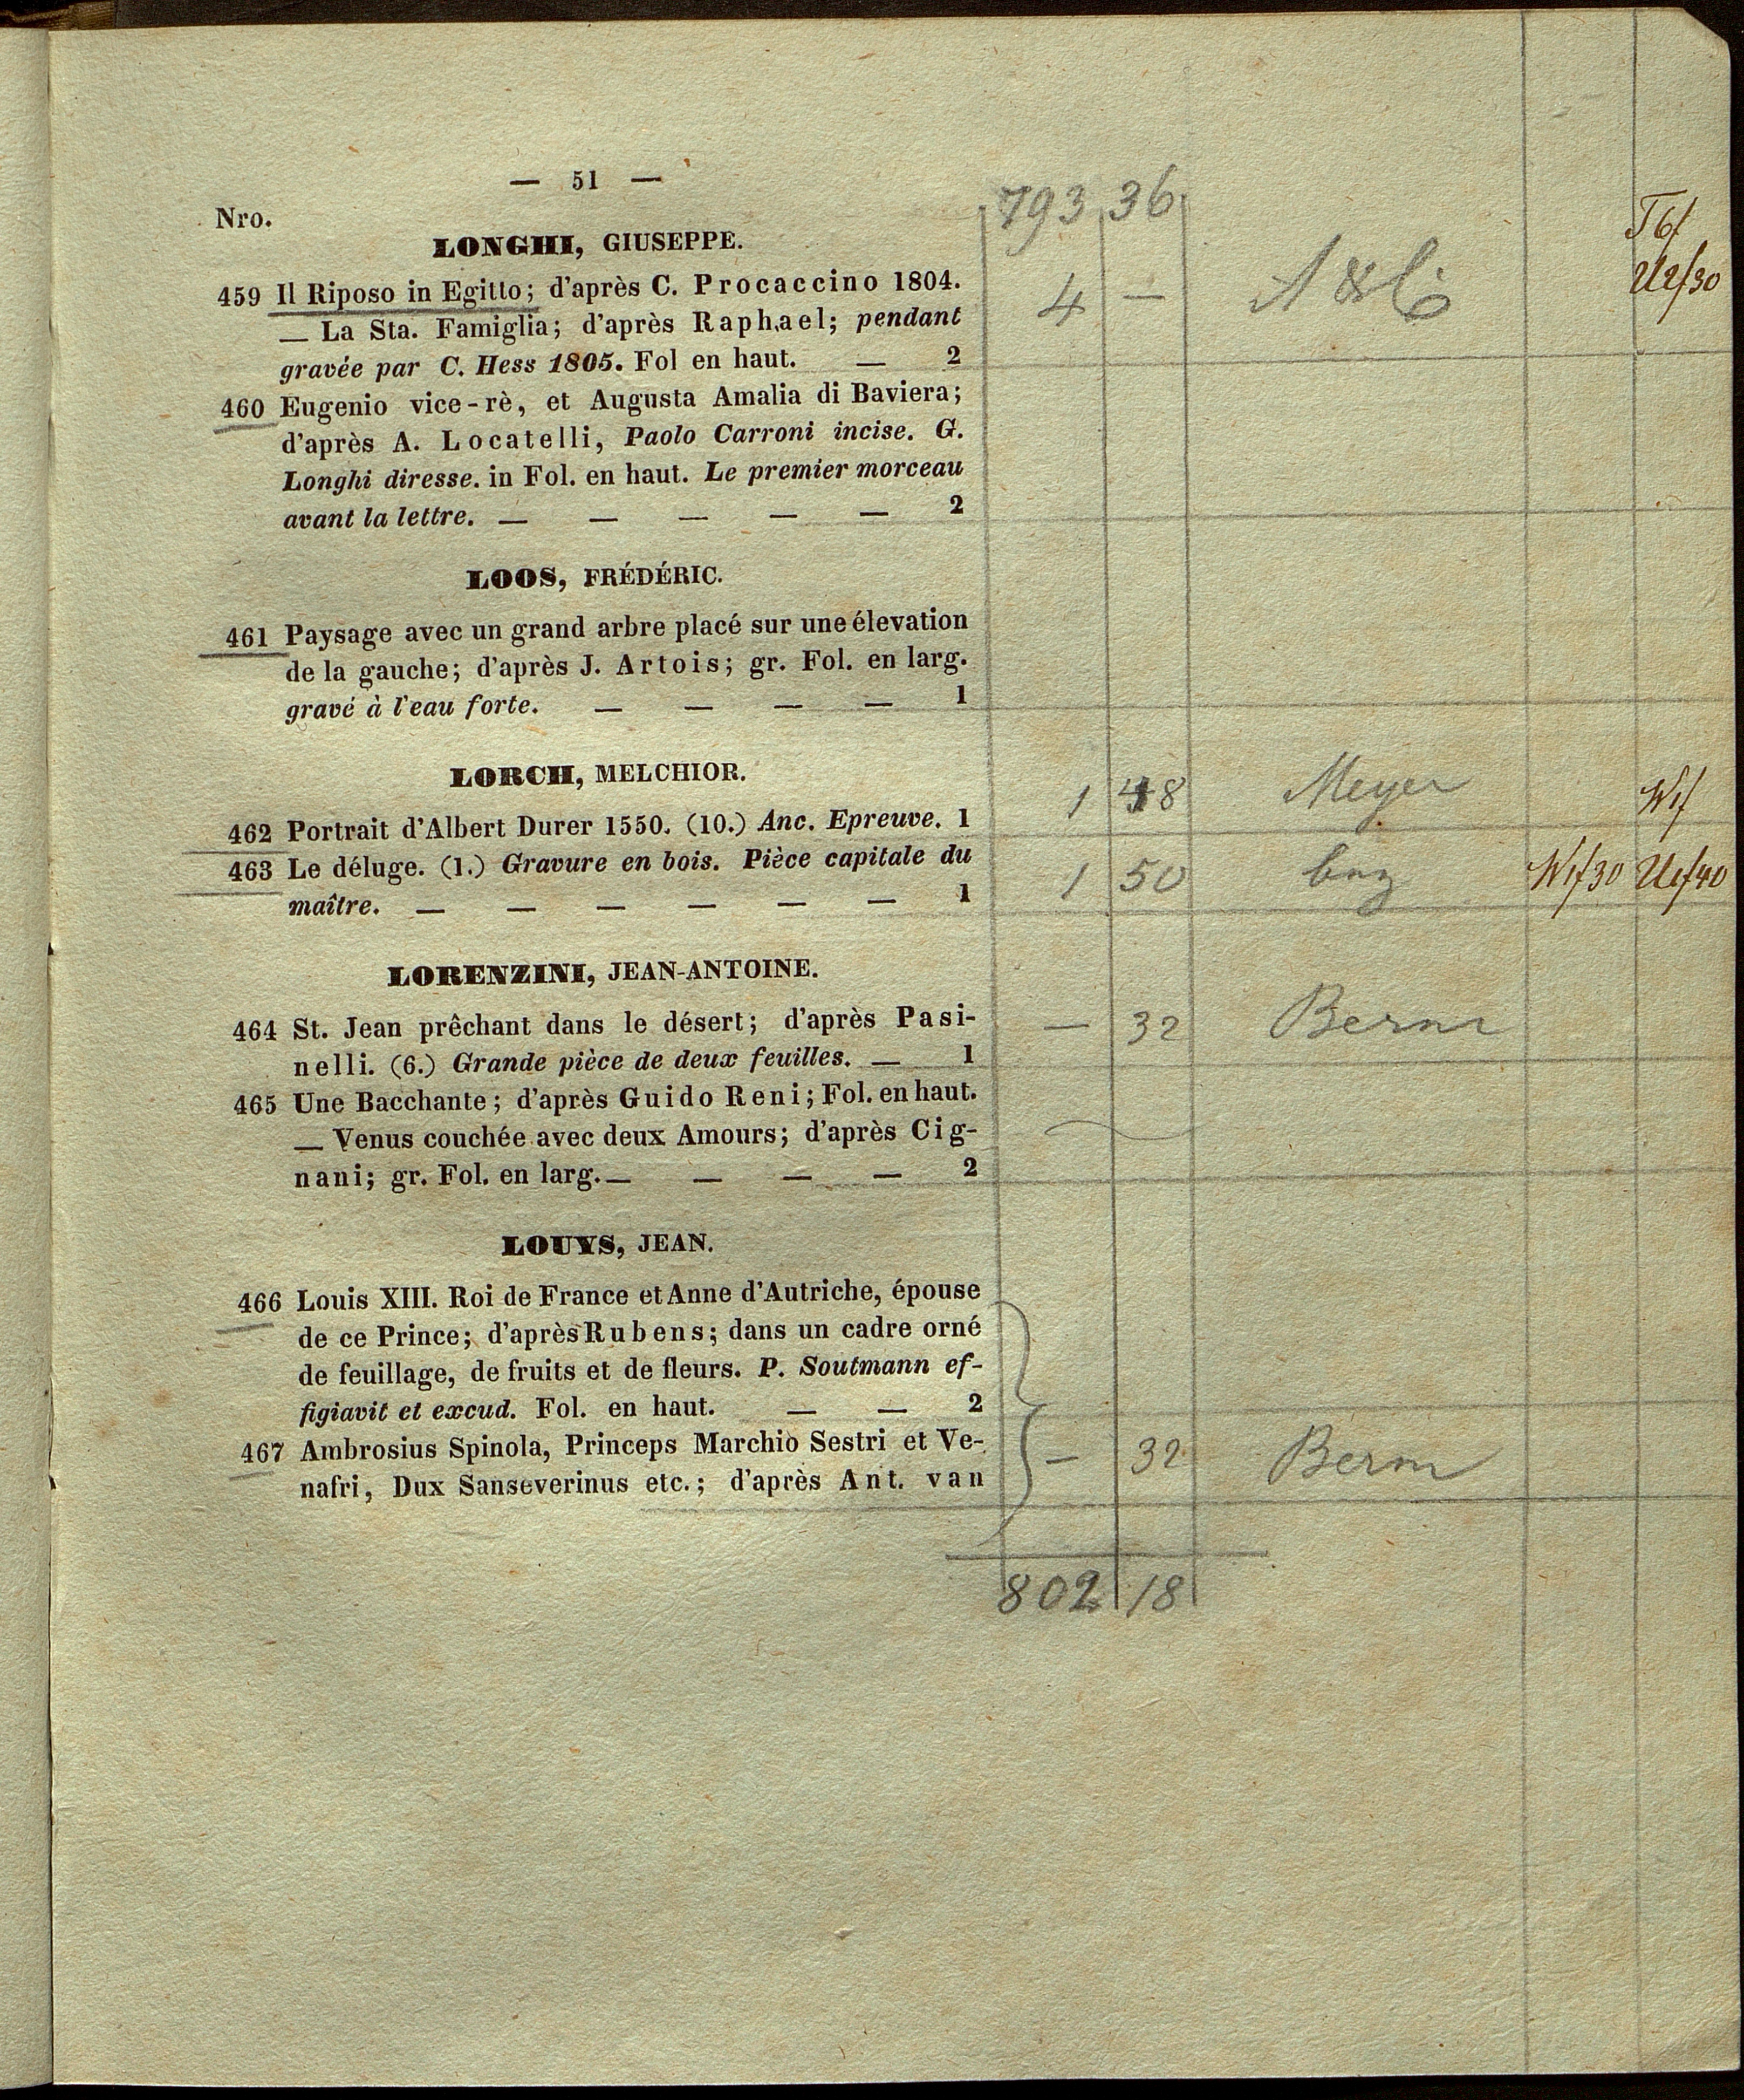 — 51 —
793 36
Nro.
LONGHI, GIUSEPPE.
459 Il Riposo in Egitto; d'après C. Procaccino 1804.
— La Sta. Famiglia; d'après Raphael; pendant
4 —
gravée par C. Hess 1805. Fol en haut. — 2
460 Eugenio vice-rè, et Augusta Amalia di Baviera;
d'après A. Locatelli, Paolo Carroni incise. G.
Longhi diresse. in Fol. en haut. Le premier morceau
avant la lettre. — — — — — 2
LOOS, FRÉDÉRIC.
461 Paysage avec un grand arbre placé sur une élevation
de la gauche; d'après J. Artois; gr. Fol. en larg.
gravé à l'eau forte. — — — — 1
LORCH, MELCHIOR.
462 Portrait d'Albert Durer 1550. (10.) Anc. Epreuve. 1
1 48 Meyer
463 Le déluge. (1.) Gravure en bois. Pièce capitale du
1 50
maître. — — — — — — 1
LORENZINI, JEAN-ANTOINE.
464 St. Jean prêchant dans le désert; d'après Pasi-
— 32
nelli. (6.) Grande pièce de deux feuilles. — 1
465 Une Bacchante; d'après Guido Reni; Fol. en haut.
— Venus couchée avec deux Amours; d'après Cig-
nani; gr. Fol. en larg. — — — — 2
LOUYS, JEAN.
466 Louis XIII. Roi de France et Anne d'Autriche, épouse
de ce Prince; d'après Rubens; dans un cadre orné
de feuillage, de fruits et de fleurs. P. Soutmann ef-
figiavit et excud. Fol. en haut. — — 2
467 Ambrosius Spinola, Princeps Marchio Sestri et Ve-
— 32
nafri, Dux Sanseverinus etc.; d'après Ant. van
802 18